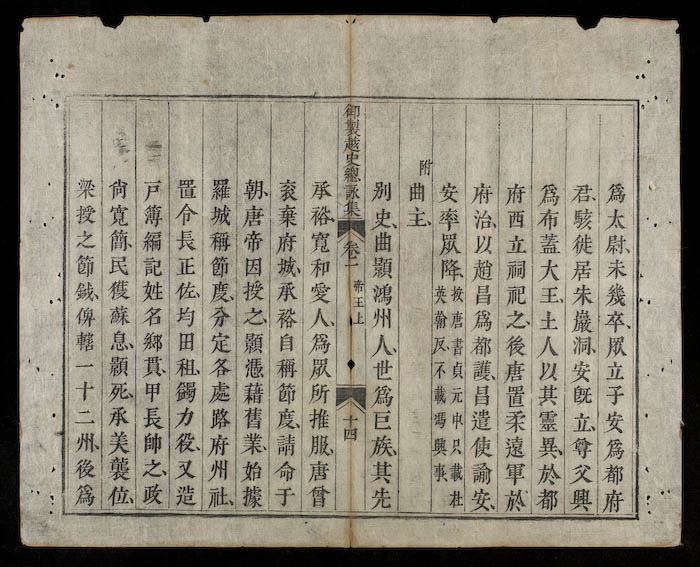 爲太尉未幾卒、眾立子安爲都府
君、駭徙居朱巖洞、安旣立、尊父興
爲布蓋大王、土人以其靈異、於都
府西立祠祀之、後唐置柔遠軍於
府治、以趙昌爲都護、昌遣使諭安、
安率眾降、按唐書貞元中只載杜
英翰反不載馮興事
附曲主、
別史、曲顥鴻州人、世爲巨族、其先
御製越史總詠集 卷一 帝王上 十四
承裕寬和愛人、爲眾所推服、唐曾
袞棄府城、承裕自稱節度、請命于
朝、唐帝因授之、顥憑藉舊業、始據
羅城稱節度、分定各處路府州社、
置令長正佐、均田租、蠲力役、又造
戶簿編記姓名鄉貫、甲長帥之、政
尙寬簡、民獲蘇息、顥死、承美襲位、
梁授之節鉞、俾轄一十二州、後爲